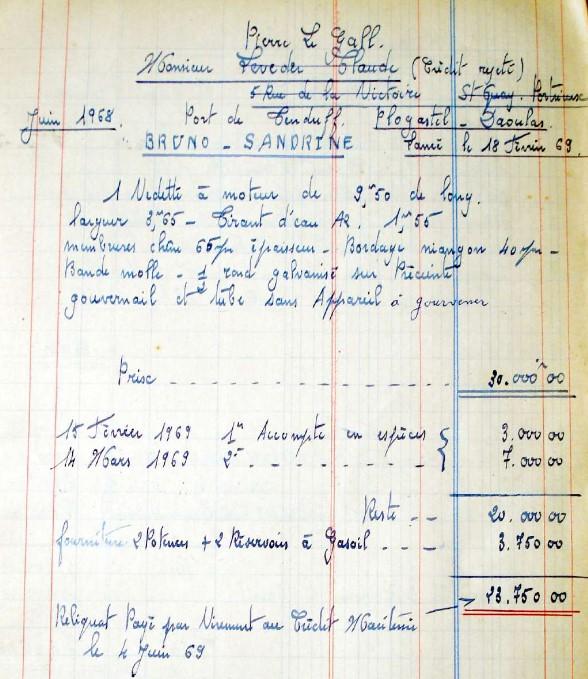 Pierre Le Gall.
Monsieur Leveder Claude (Crédit rejeté)
5 Rue de la Victoire St Quay. Portrieux
Juin 1968. Port de Tinduff. Plogastel - Daoulas.
BRUNO - SANDRINE Lancé le 18 Février 69.
1 Vedette à moteur de 9,m50 de long.
largeur 3,m65 - Tirant d'eau AR. 1,m55
membrures chêne 65 épaisseur - Bordage niangon 40 -
Bande molle - 1/2 rond galvanisé sur Préceinte
gouvernail et tube sans Appareil à gouverner
Prise 30.000 00
15 Février 1969 1er Accompte en espèces 3.000 00
14 Mars 1969 2e 7.000 00
Reste 20.000 00
fourniture 2 Potences + 2 Réservoirs à Gasoil 3.750 00
23.750 00
Reliquat Payé par Virement au Crédit Maritime
le 4 Juin 69